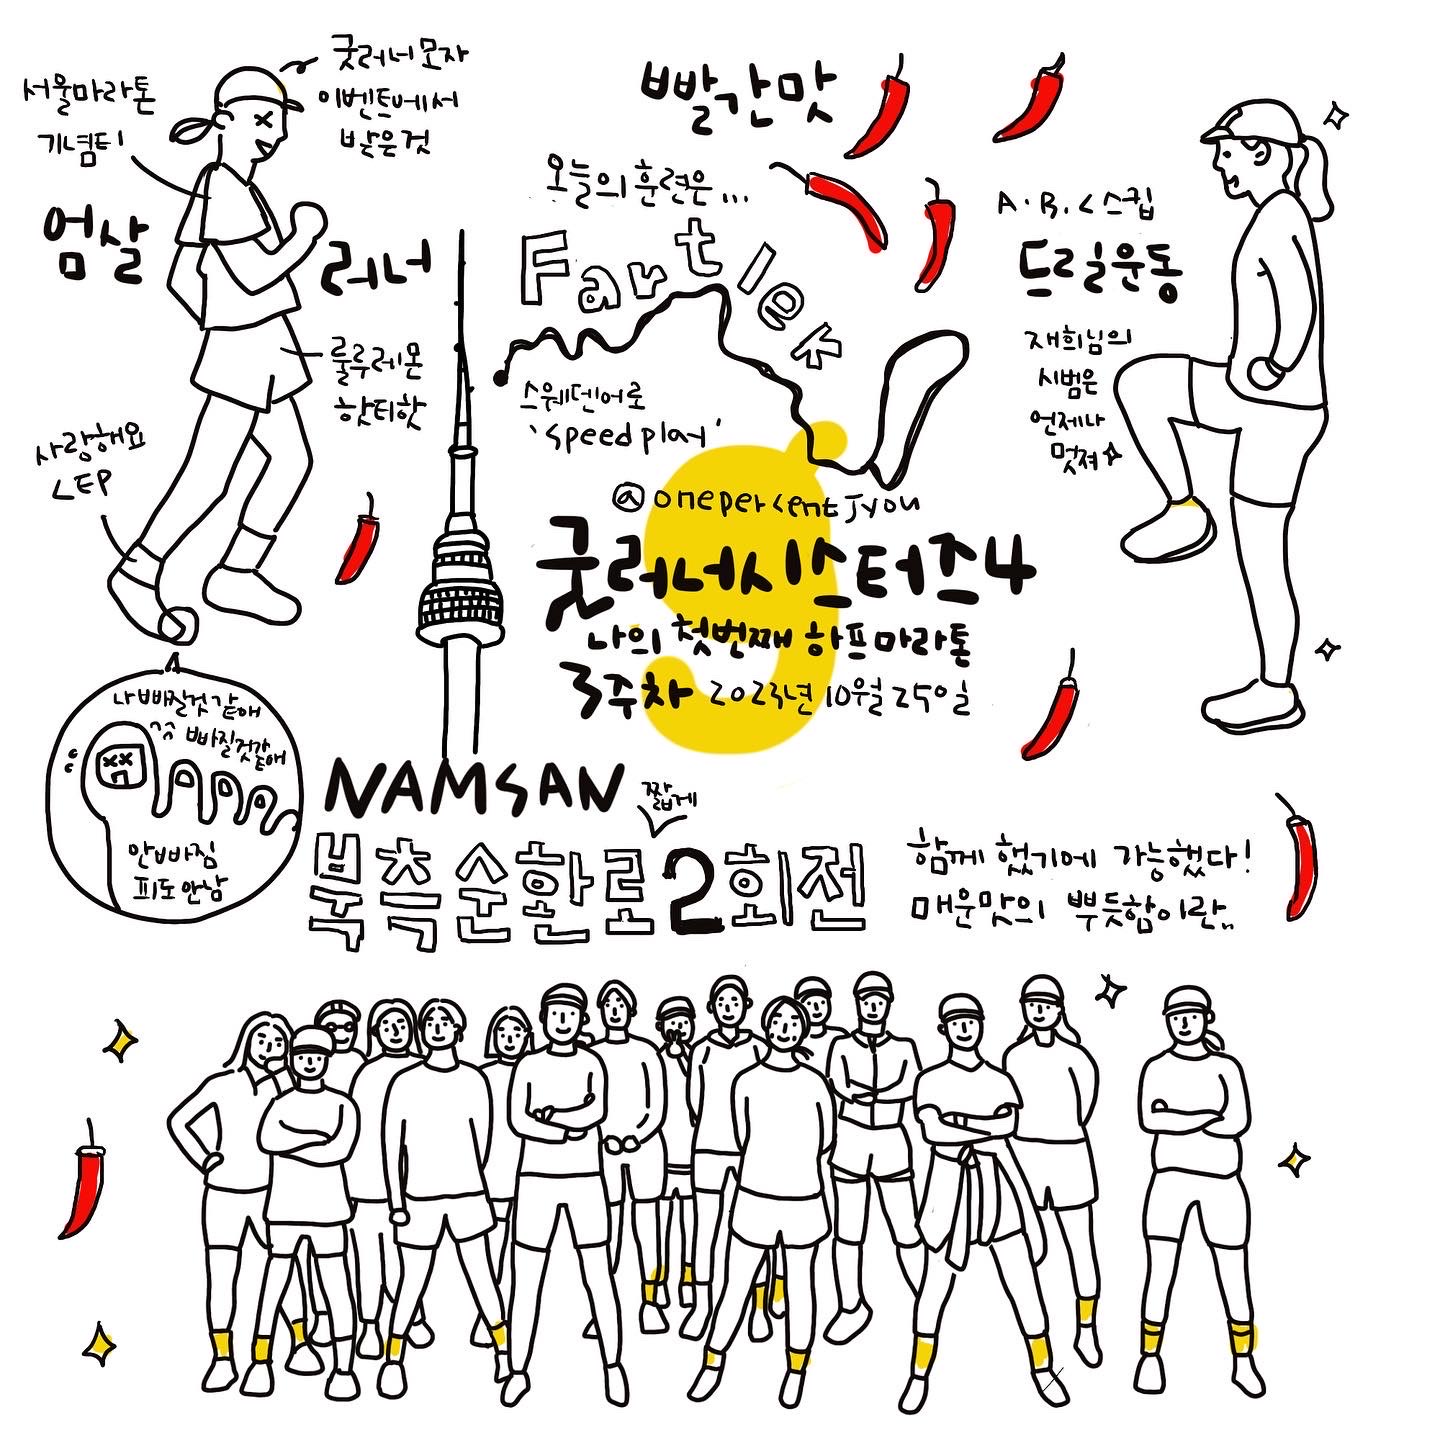 굿러너 모자
이벤트에서
받은 것
서울마라톤
기념티
엄살
러너
룰루레몬
핫티핫
사랑해요
LEP
나 빠질것 같애
ㅋㅋ 빠질것같애
안빠짐
피도 안남
빨간맛
오늘의 훈련은...
Fartlek
스웨덴어로
'speed play'
A.B.C 스킵
드릴운동
재희님의
시범은
언제나
멋져
@onepercentjyou
굿러너시스터즈4
나의 첫번째 하프마라톤
3주차 2023년 10월 25일
NAMSAN
짧게
북측순환로2회전
함께 했기에 가능했다!
매운맛의 뿌듯함이란..